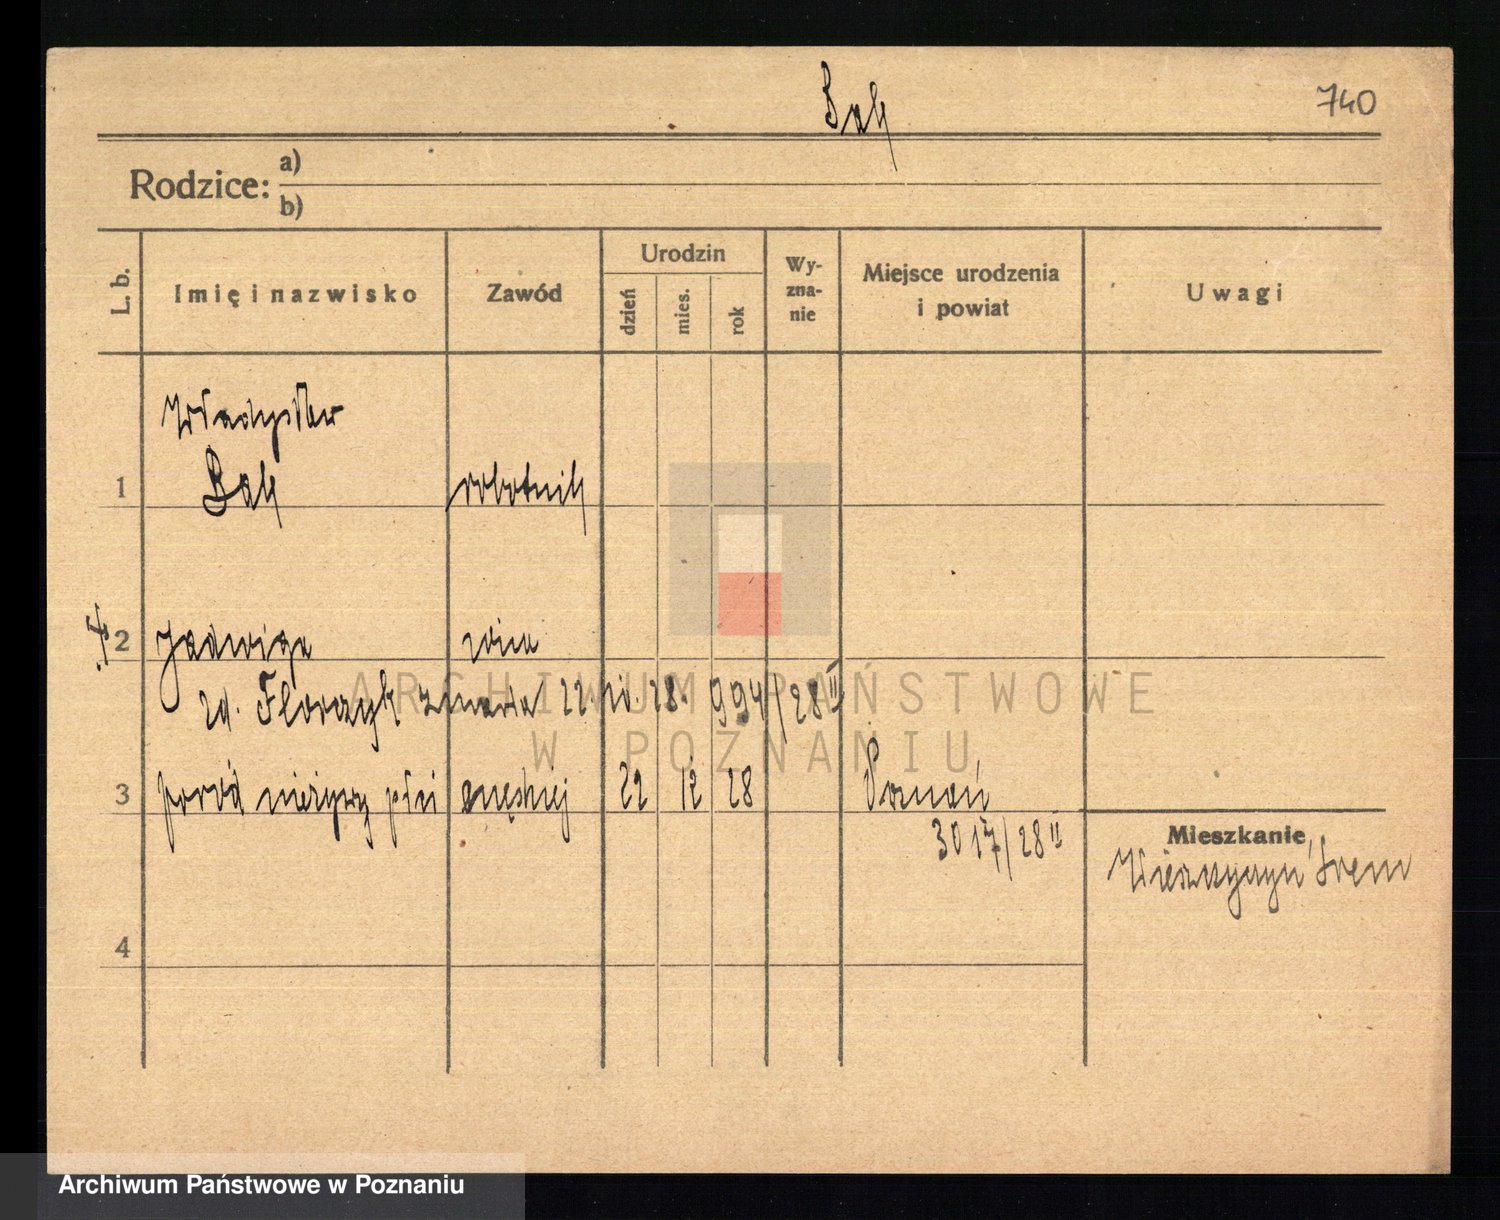 Bąk
740
Rodzice: a)
b)
L. b.
Imię i nazwisko
Zawód
Urodzin
dzień
mies.
rok
Wy-
zna-
nie
Miejsce urodzenia
i powiat
Uwagi
Władysław
1 Bąk robotnik
2 Jadwiga żona
zd. Florczyk zmarła 22. 28. 994/28 II
3 poród nieżywy płci męskiej 22 12 28 Poznań
3017/28 II
Mieszkanie
Śrem
4
ARCHIWUM PAŃSTWOWE
W POZNANIU
Archiwum Państwowe w Poznaniu